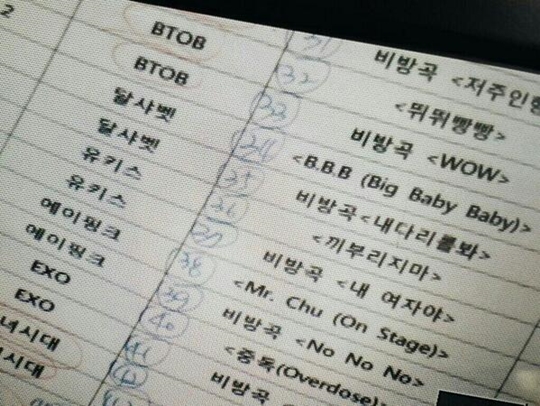 2
31 비방곡 <저주인형
BTOB 32 <뛰뛰빵빵>
BTOB 33 비방곡 <WOW>
달샤벳 34 <B.B.B (Big Baby Baby)>
달샤벳 35 비방곡<내다리를봐>
유키스 36 <끼부리지마>
유키스 비방곡 <내 여자야>
에이핑크 38 <Mr. Chu (On Stage)>
에이핑크 39 비방곡 <No No No>
EXO 40 <중독(Overdose)>
EXO 41 비방곡 <
녀시대 42
시대